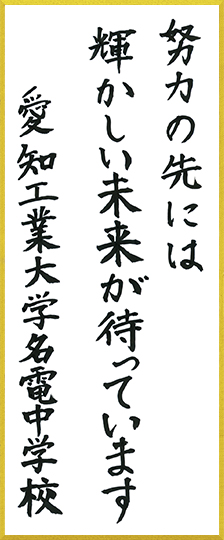 努力の先には
輝かしい未来が待っています
愛知工業大学名電中学校